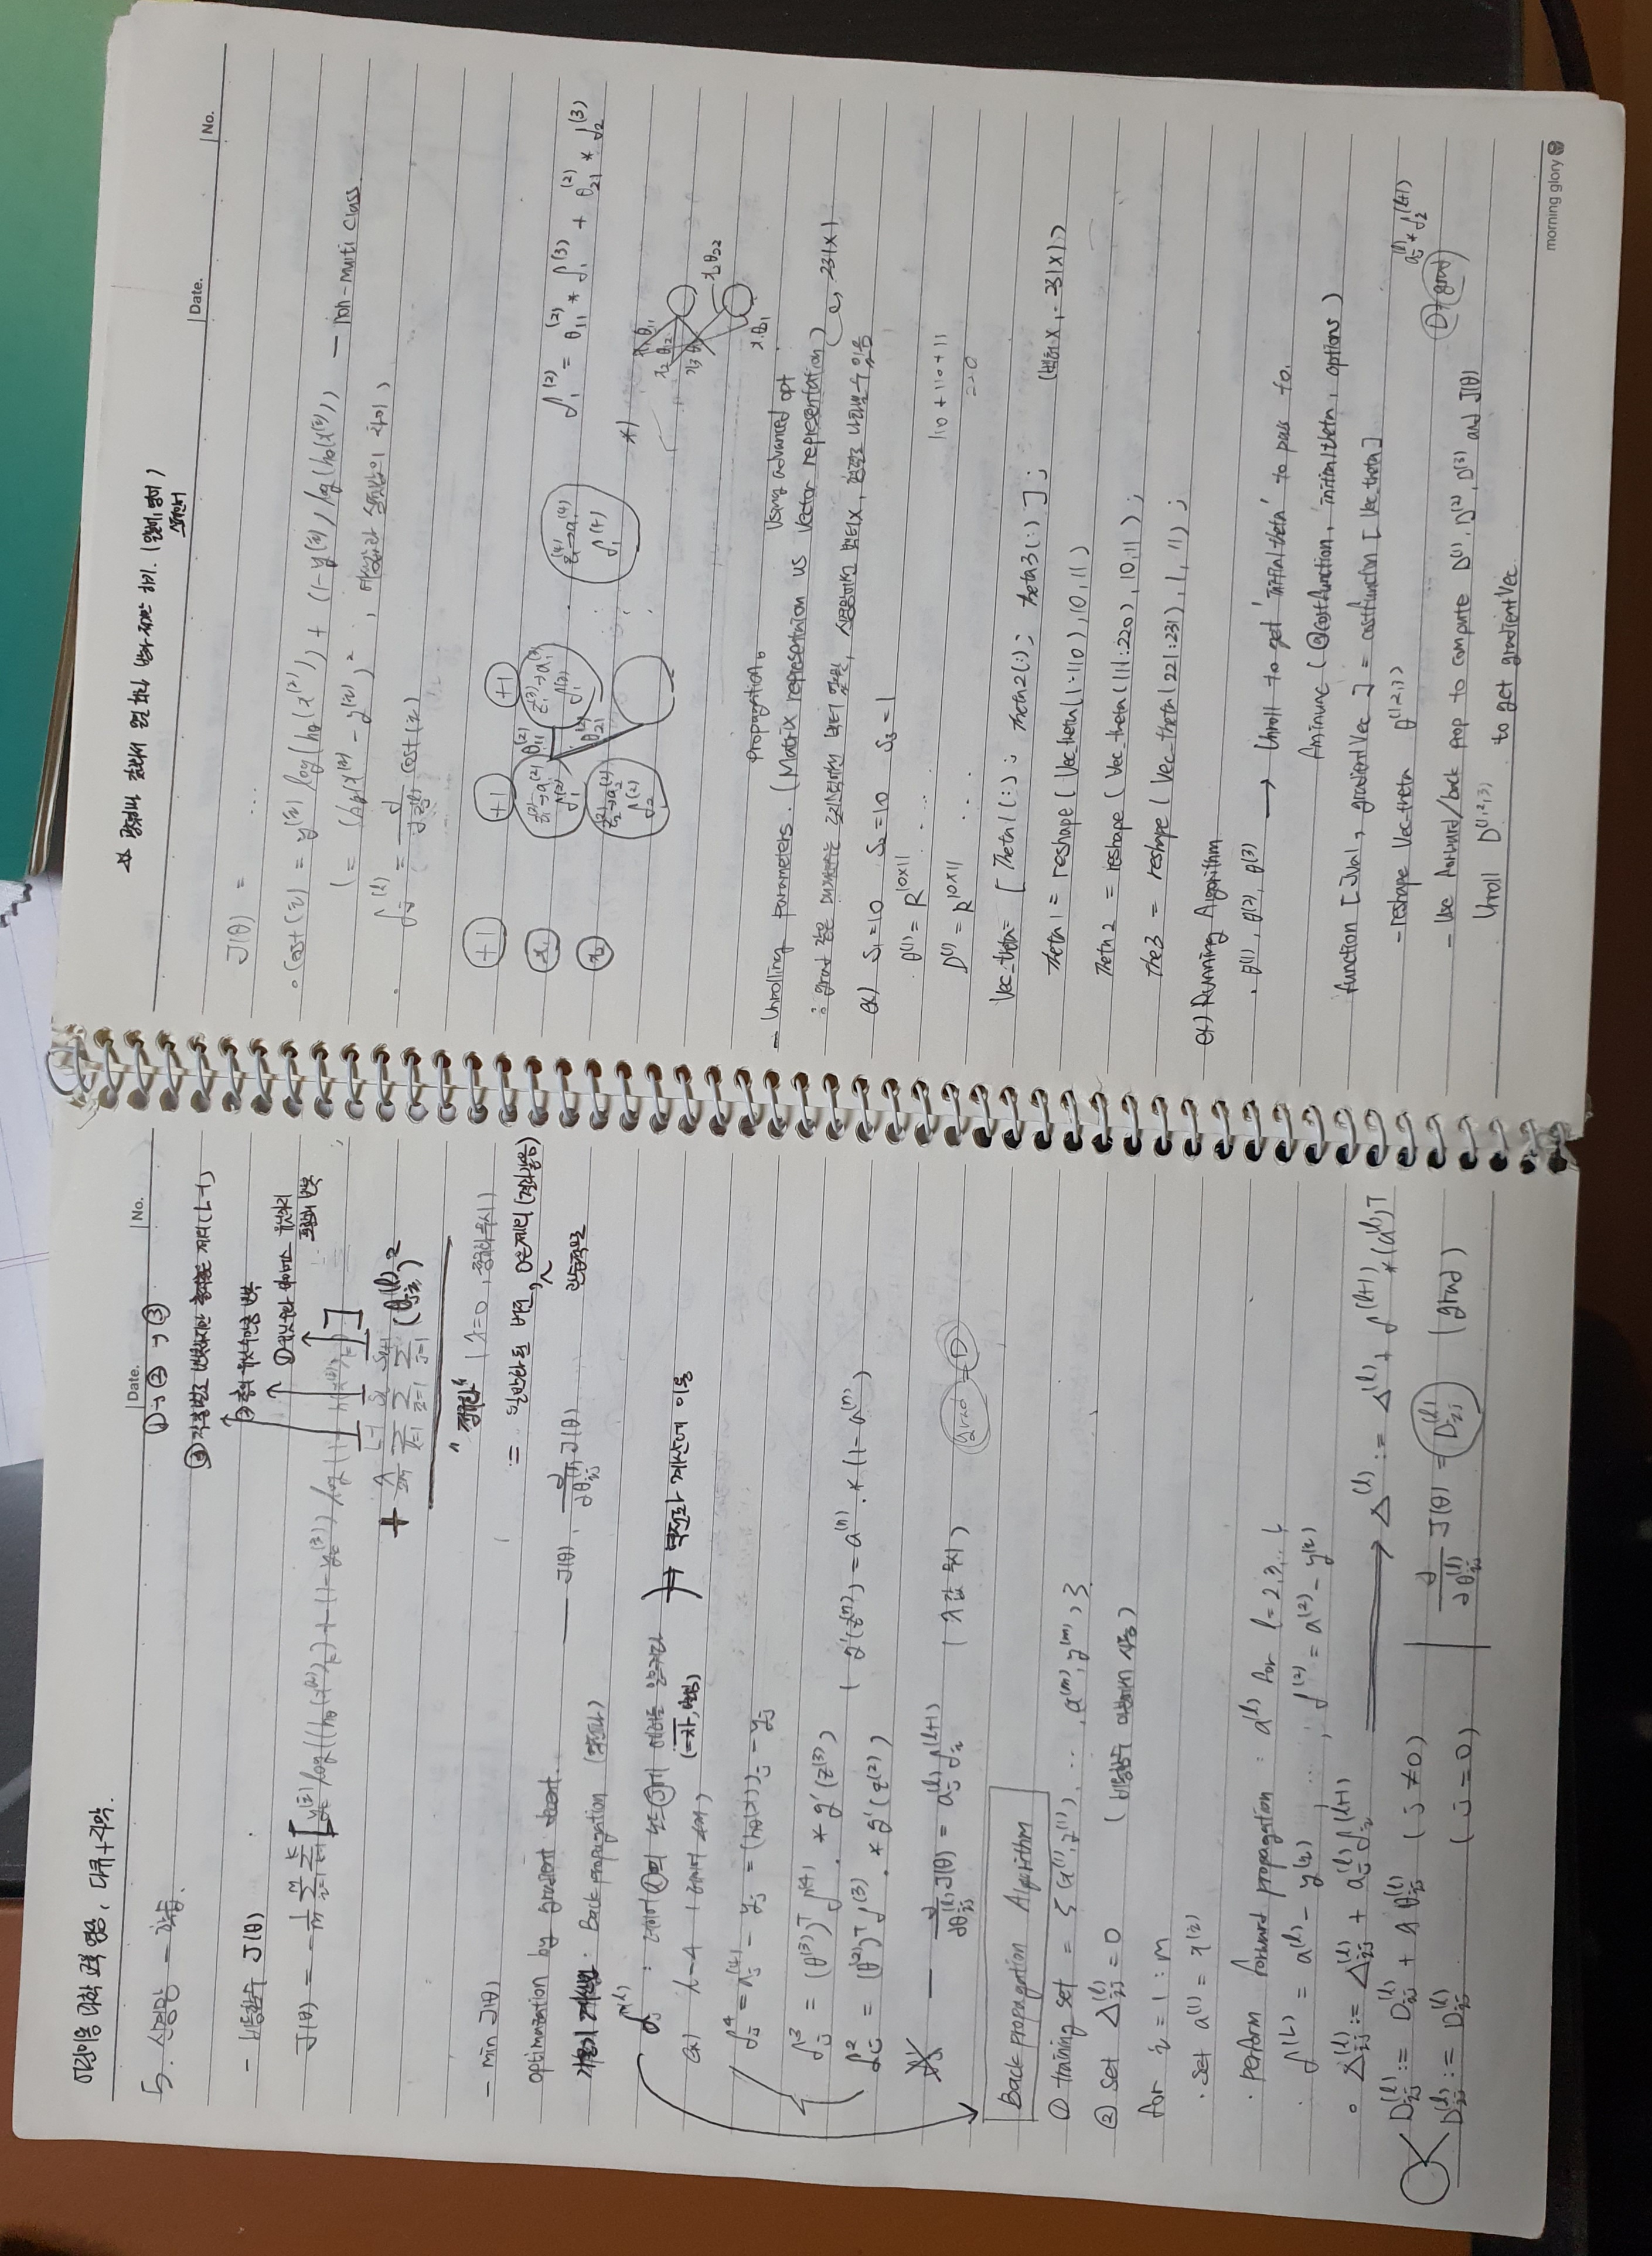 어린이용 과학 교육 영상, 다큐+자막.
Date. No.
5. 신경망 - 학습.
①→②→③
③ 각 층별로 반복하지만 출력층은 제외(L-1)
② 층의 유닛수만큼 반복
① 유닛수와 바이어스 유닛까지
포함해 반복
- 비용함수 J(θ)
J(θ) = -1/m Σ_{i=1}^{m} Σ_{k=1}^{K} [y_k^(i) log((hθ(x^(i))_k) + (1-y_k^(i)) log(1-h(x^(i))_k]
+ λ/2m Σ_{l=1}^{L-1} Σ_{i=1}^{Sl} Σ_{j=1}^{Sl+1} (θ_ji^(l))²
"정규화" (λ=0, 정규화 무시)
- min J(θ)
:= 일반화된 버전, 0은 제외 (결과같음)
관습적으로
optimazation by gradient decent.
— J(θ), ∂/∂θ_ij^(l) J(θ)
기울기 계산법 : Back propagation (역전파)
δ_j^(l) : 레이어 ⓛ의 노드 ⓙ에 에러를 일으키다
→ 역전파 계산에 이용
ex) L-4 (레이어 4개)
δ_j^4 = a_j^(4) - y_j = (hθ(x))_j - y_j
δ_j^3 = (θ^(3))^T δ^(4) .* g'(z^(3))
( g'(z^(n)) = a^(n) .* (1-a^(n))
δ_j^2 = (θ^(2))^T δ^(3) .* g'(z^(2))
— ∂/∂θ_ij^(l) J(θ) = a_j^(l) δ_i^(l+1) (λ값 무시) grad = D
Back propagation Algorithm
① training set = {(x^(1), y^(1)), ... , (x^(m), y^(m))}
② set Δ_ij^(l) = 0 (비용함수 미분에서 사용)
for i = 1 : m
· set a^(1) = x^(i)
· perform forward propagation : a^(l) for l = 2,3,.. L
· δ^(L) = a^(l) - y^(i) , ... ; δ^(2) = a^(2) - y^(i)
∘ Δ_ij^(l) := Δ_ij^(l) + a_j^(l) δ_i^(l+1) → Δ^(l) := Δ^(l) + δ^(l+1) * (a^(l))^T
D_ij^(l) := D_ij^(l) + λ θ_ij^(l) ( j ≠ 0)
D_ij^(l) := D_ij^(l) ( j = 0)
∂/∂θ_ij^(l) J(θ) = D_ij^(l) (grad)
(일본어, 영어)
스페인어
Date. No.
J(θ) = ...
∘ Cost(i) = y^(i) log(hθ(x^(i))) + (1-y^(i)) log(hθ(x^(i))) — non-multi class.
(= (hθ(x^(i)) - y^(i))² , 예상값과 실젯값의 차이)
· δ_j^(l) = ∂/∂z_j^(l) cost(i)
+1 +1 +1
x₁ z₁^(2)→a₁^(2) δ₁^(2) θ₁₁^(2) z₁^(3)→a₁^(3) δ₁^(3)
z₁^(4)→a₁^(4) δ₁^(4)
δ₁^(2) = θ₁₁^(2) * δ₁^(3) + θ₂₁^(2) * δ₂^(3)
x₂ z₂^(2)→a₂^(2) δ₂^(2) θ₂₁^(2)
*)
x₁ θ₁₁
x₂ θ₁₂
x₂θ₂₂
propagation.
using advanced opt
- Unrolling parameters. (Matrix representaion vs vector representation)
231x1
: grad 같은 매개변수는 로지스틱에선 벡터 였지만, 신경망에선 벡터x, 행렬로 나타낼수 있음
ex) S₁=10 S₂=10 S₃=1
· θ^(1) = R^10x11 ...
D^(1) = R^10x11 ...
110 + 110 + 11
220
Vec_theta= [Theta1(:) ; Theta2(:); theta3(:)];
theta1 = reshape(Vec_theta(1:110),10,11)
Theta2 = reshape (Vec_theta(111:220), 10,11);
the3 = reshape (Vec_theta(221:231), 1, 11);
ex) Running Algorithm
· θ^(1), θ^(2), θ^(3) → Unroll to get 'initialtheta' to pass to.
fminunc (@costfunction, initialtheta, options)
function [Jval, gradientVec] = costfunction [Vec_theta]
- reshape Vec-theta θ^(1,2,3)
a_j^(l) * δ_i^(l+1)
D = grad
- Use forward/back prop to compute D^(1), D^(2), D^(3) and J(θ)
Unroll D^(1,2,3) to get gradientVec
morning glory